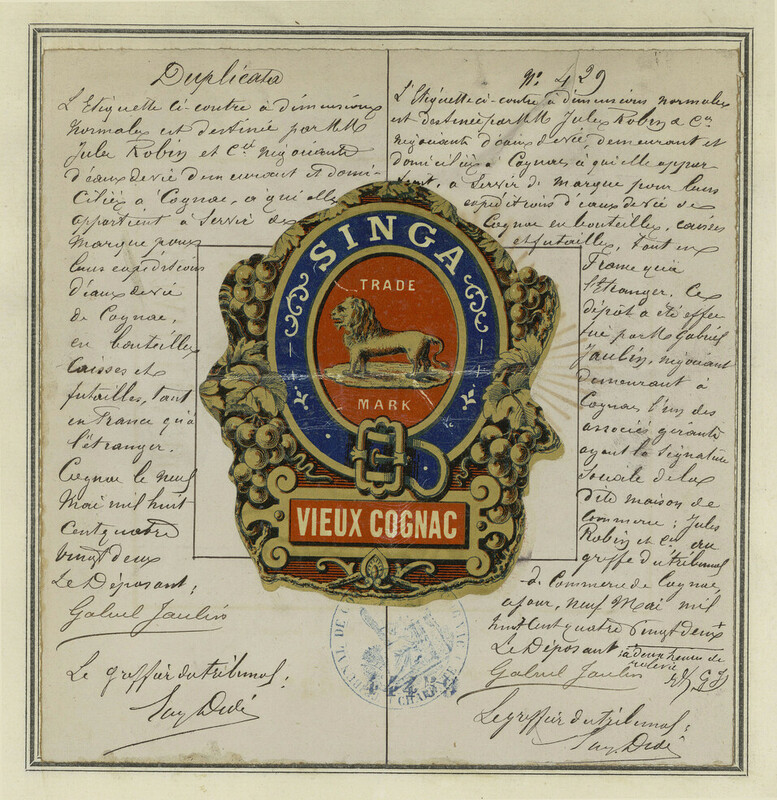 Duplicata
L'Etiquette ci-contre à dimensions
normales est destinée par MM
Jules Robin et Cie négociants
d'eaux de vie demeurant et domi-
ciliés à Cognac, à qui elle
appartient à servir de
marque pour
leurs expéditions
d'eaux de vie
de Cognac,
en bouteilles
caisses et
futailles, tant
en France qu'à
l'étranger.
Cognac le neuf
Mai mil huit
cent quatre
vingt deux
Le Déposant:
Gabriel Jaulin
Le greffier du tribunal:
N° 429
L'Etiquette ci-contre à dimensions normales
est destinée par MM Jules Robin & Cie
négociants d'eaux de vie, demeurant et
domiciliés à Cognac à qui elle appar
tient, à servir de marque pour leurs
expéditions d'eaux de vie de
Cognac en bouteilles, caisses
et futailles, tant en
France qu'à
l'étranger. Ce
dépôt a été effec
tué par M Gabriel
Jaulin, négociant
demeurant à
Cognac l'un des
associés gérants
ayant la signature
sociale de la
dite maison de
Commerce: Jules
Robin et Cie au
greffe du tribunal
de Commerce de Cognac,
ce jour, neuf Mai mil
huit cent quatre vingt deux
Le Déposant à deux heures de
relevée
Gabriel Jaulin G J
Le greffier du tribunal:
SINGA
TRADE
MARK
VIEUX COGNAC